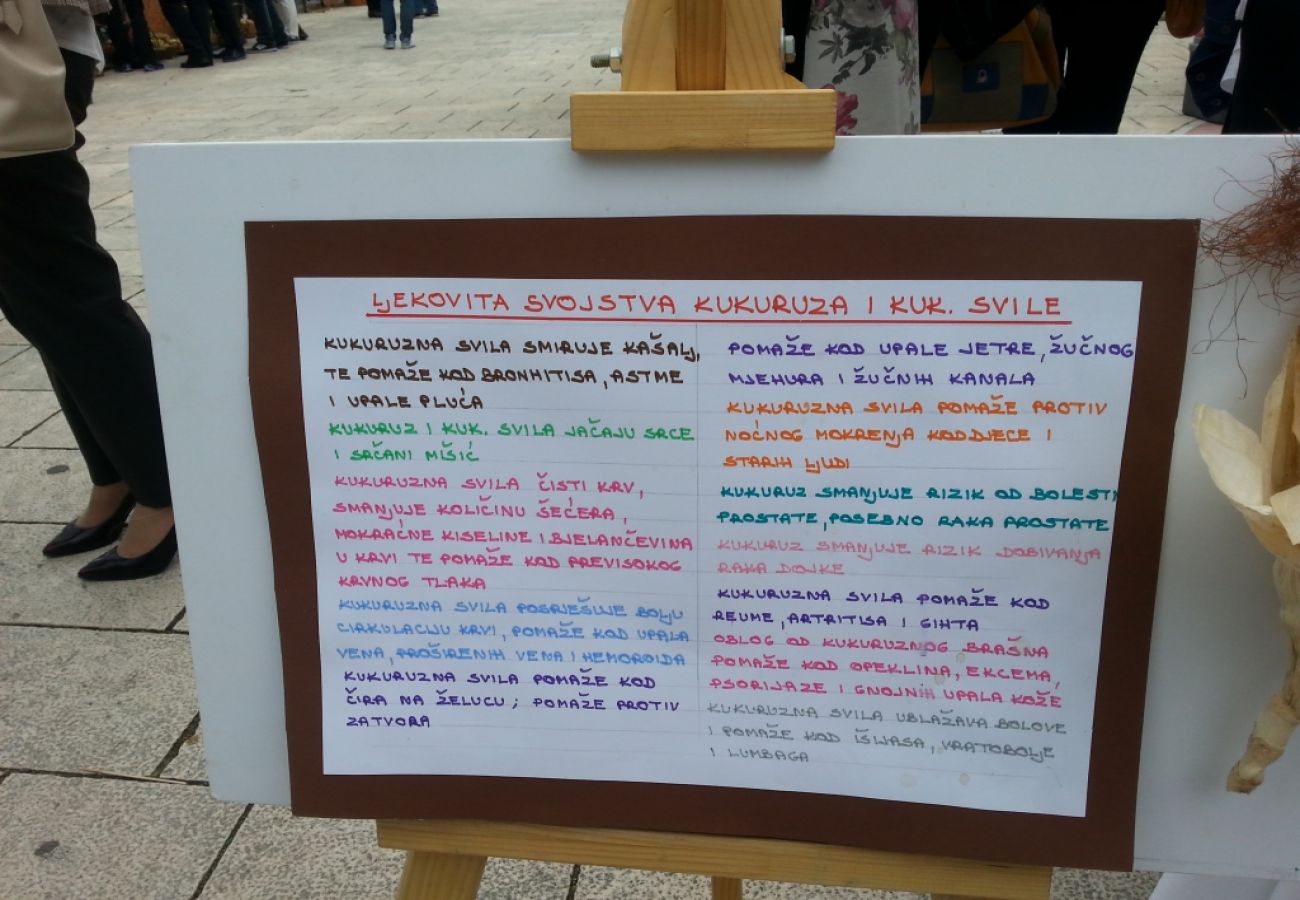 LJEKOVITA SVOJSTVA KUKURUZA I KUK. SVILE
KUKURUZNA SVILA SMIRUJE KAŠALJ,
TE POMAŽE KOD BRONHITISA, ASTME
I UPALE PLUĆA
KUKURUZ I KUK. SVILA JAČAJU SRCE
I SRČANI MIŠIĆ
KUKURUZNA SVILA ČISTI KRV,
SMANJUJE KOLIČINU ŠEĆERA,
MOKRAĆNE KISELINE I BJELANČEVINA
U KRVI TE POMAŽE KOD PREVISOKOG
KRVNOG TLAKA
KUKURUZNA SVILA POSPJEŠUJE BOLJU
CIRKULACIJU KRVI, POMAŽE KOD UPALA
VENA, PROŠIRENIH VENA I HEMOROIDA
KUKURUZNA SVILA POMAŽE KOD
ČIRA NA ŽELUCU; POMAŽE PROTIV
ZATVORA
POMAŽE KOD UPALE JETRE, ŽUČNOG
MJEHURA I ŽUČNIH KANALA
KUKURUZNA SVILA POMAŽE PROTIV
NOĆNOG MOKRENJA KOD DJECE I
STARIH LJUDI
KUKURUZ SMANJUJE RIZIK OD BOLESTI
PROSTATE, POSEBNO RAKA PROSTATE
KUKURUZ SMANJUJE RIZIK DOBIVANJA
RAKA DOJKE
KUKURUZNA SVILA POMAŽE KOD
REUME, ARTRITISA I GIHTA
OBLOG OD KUKURUZNOG BRAŠNA
POMAŽE KOD OPEKLINA, EKCEMA,
PSORIJAZE I GNOJNIH UPALA KOŽE
KUKURUZNA SVILA UBLAŽAVA BOLOVE
I POMAŽE KOD IŠIJASA, VRATOBOLJE
I LUMBAGA